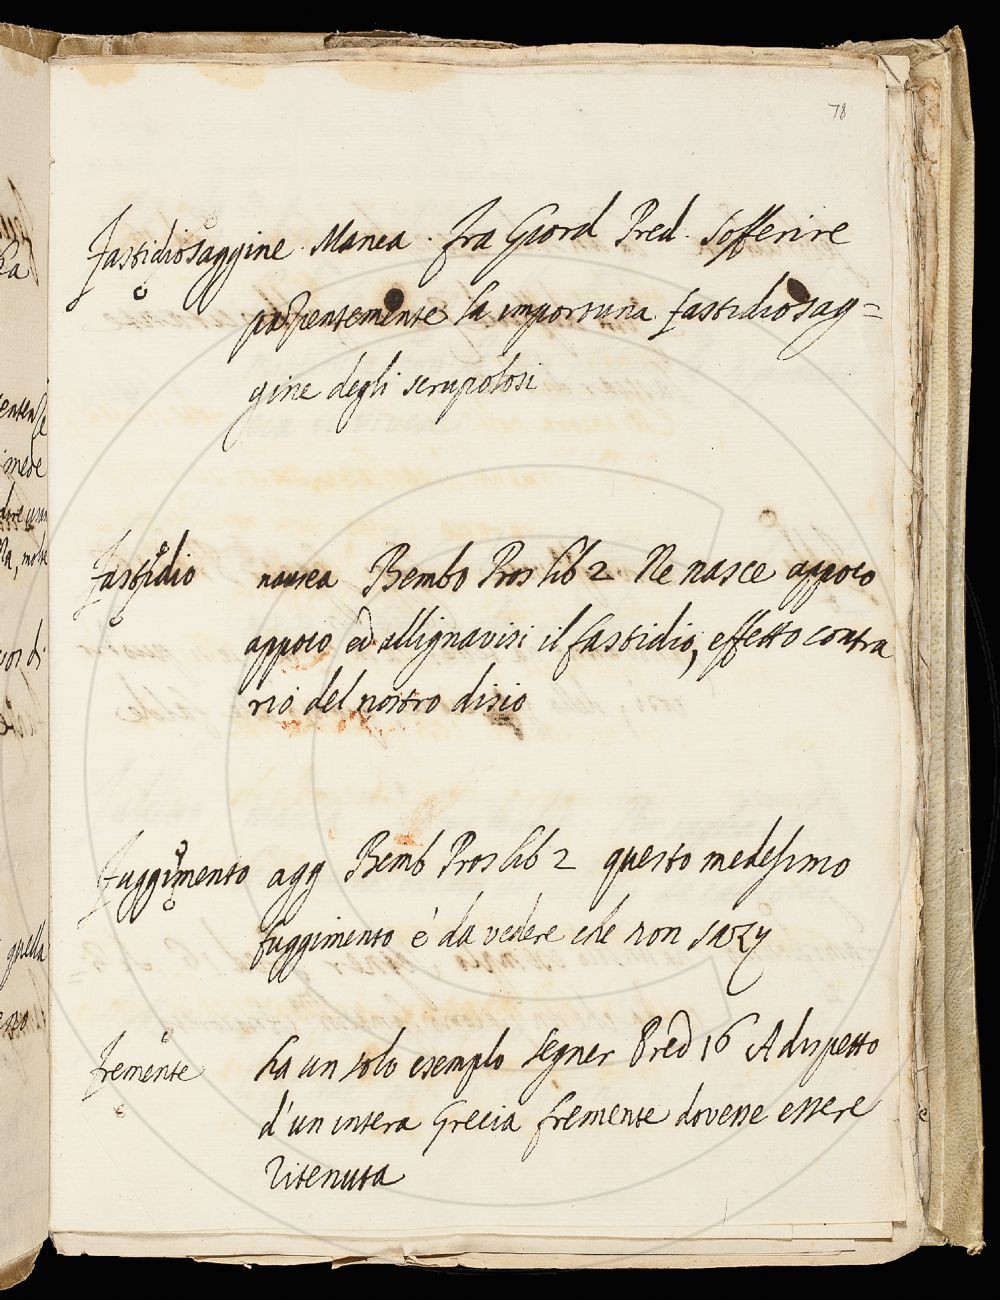 78
Fastidiosaggine. Manca. Fra Giord Pred. Sofferire
pazientemente la importuna fastidiosag=
gine degli scrupolosi
Fastidio nausea Bembo Pros lib 2. Ne nasce appoco
appoco ed allignavisi il fastidio, effetto contra
rio del nostro disio
Fuggimento agg Bemb Pros lib 2 questo medesimo
fuggimento è da vedere che non sazy
Fremente ha un solo esemplo Segner Pred 16 A dispetto
d'un intera Grecia fremente dovesse essere
ritenuta